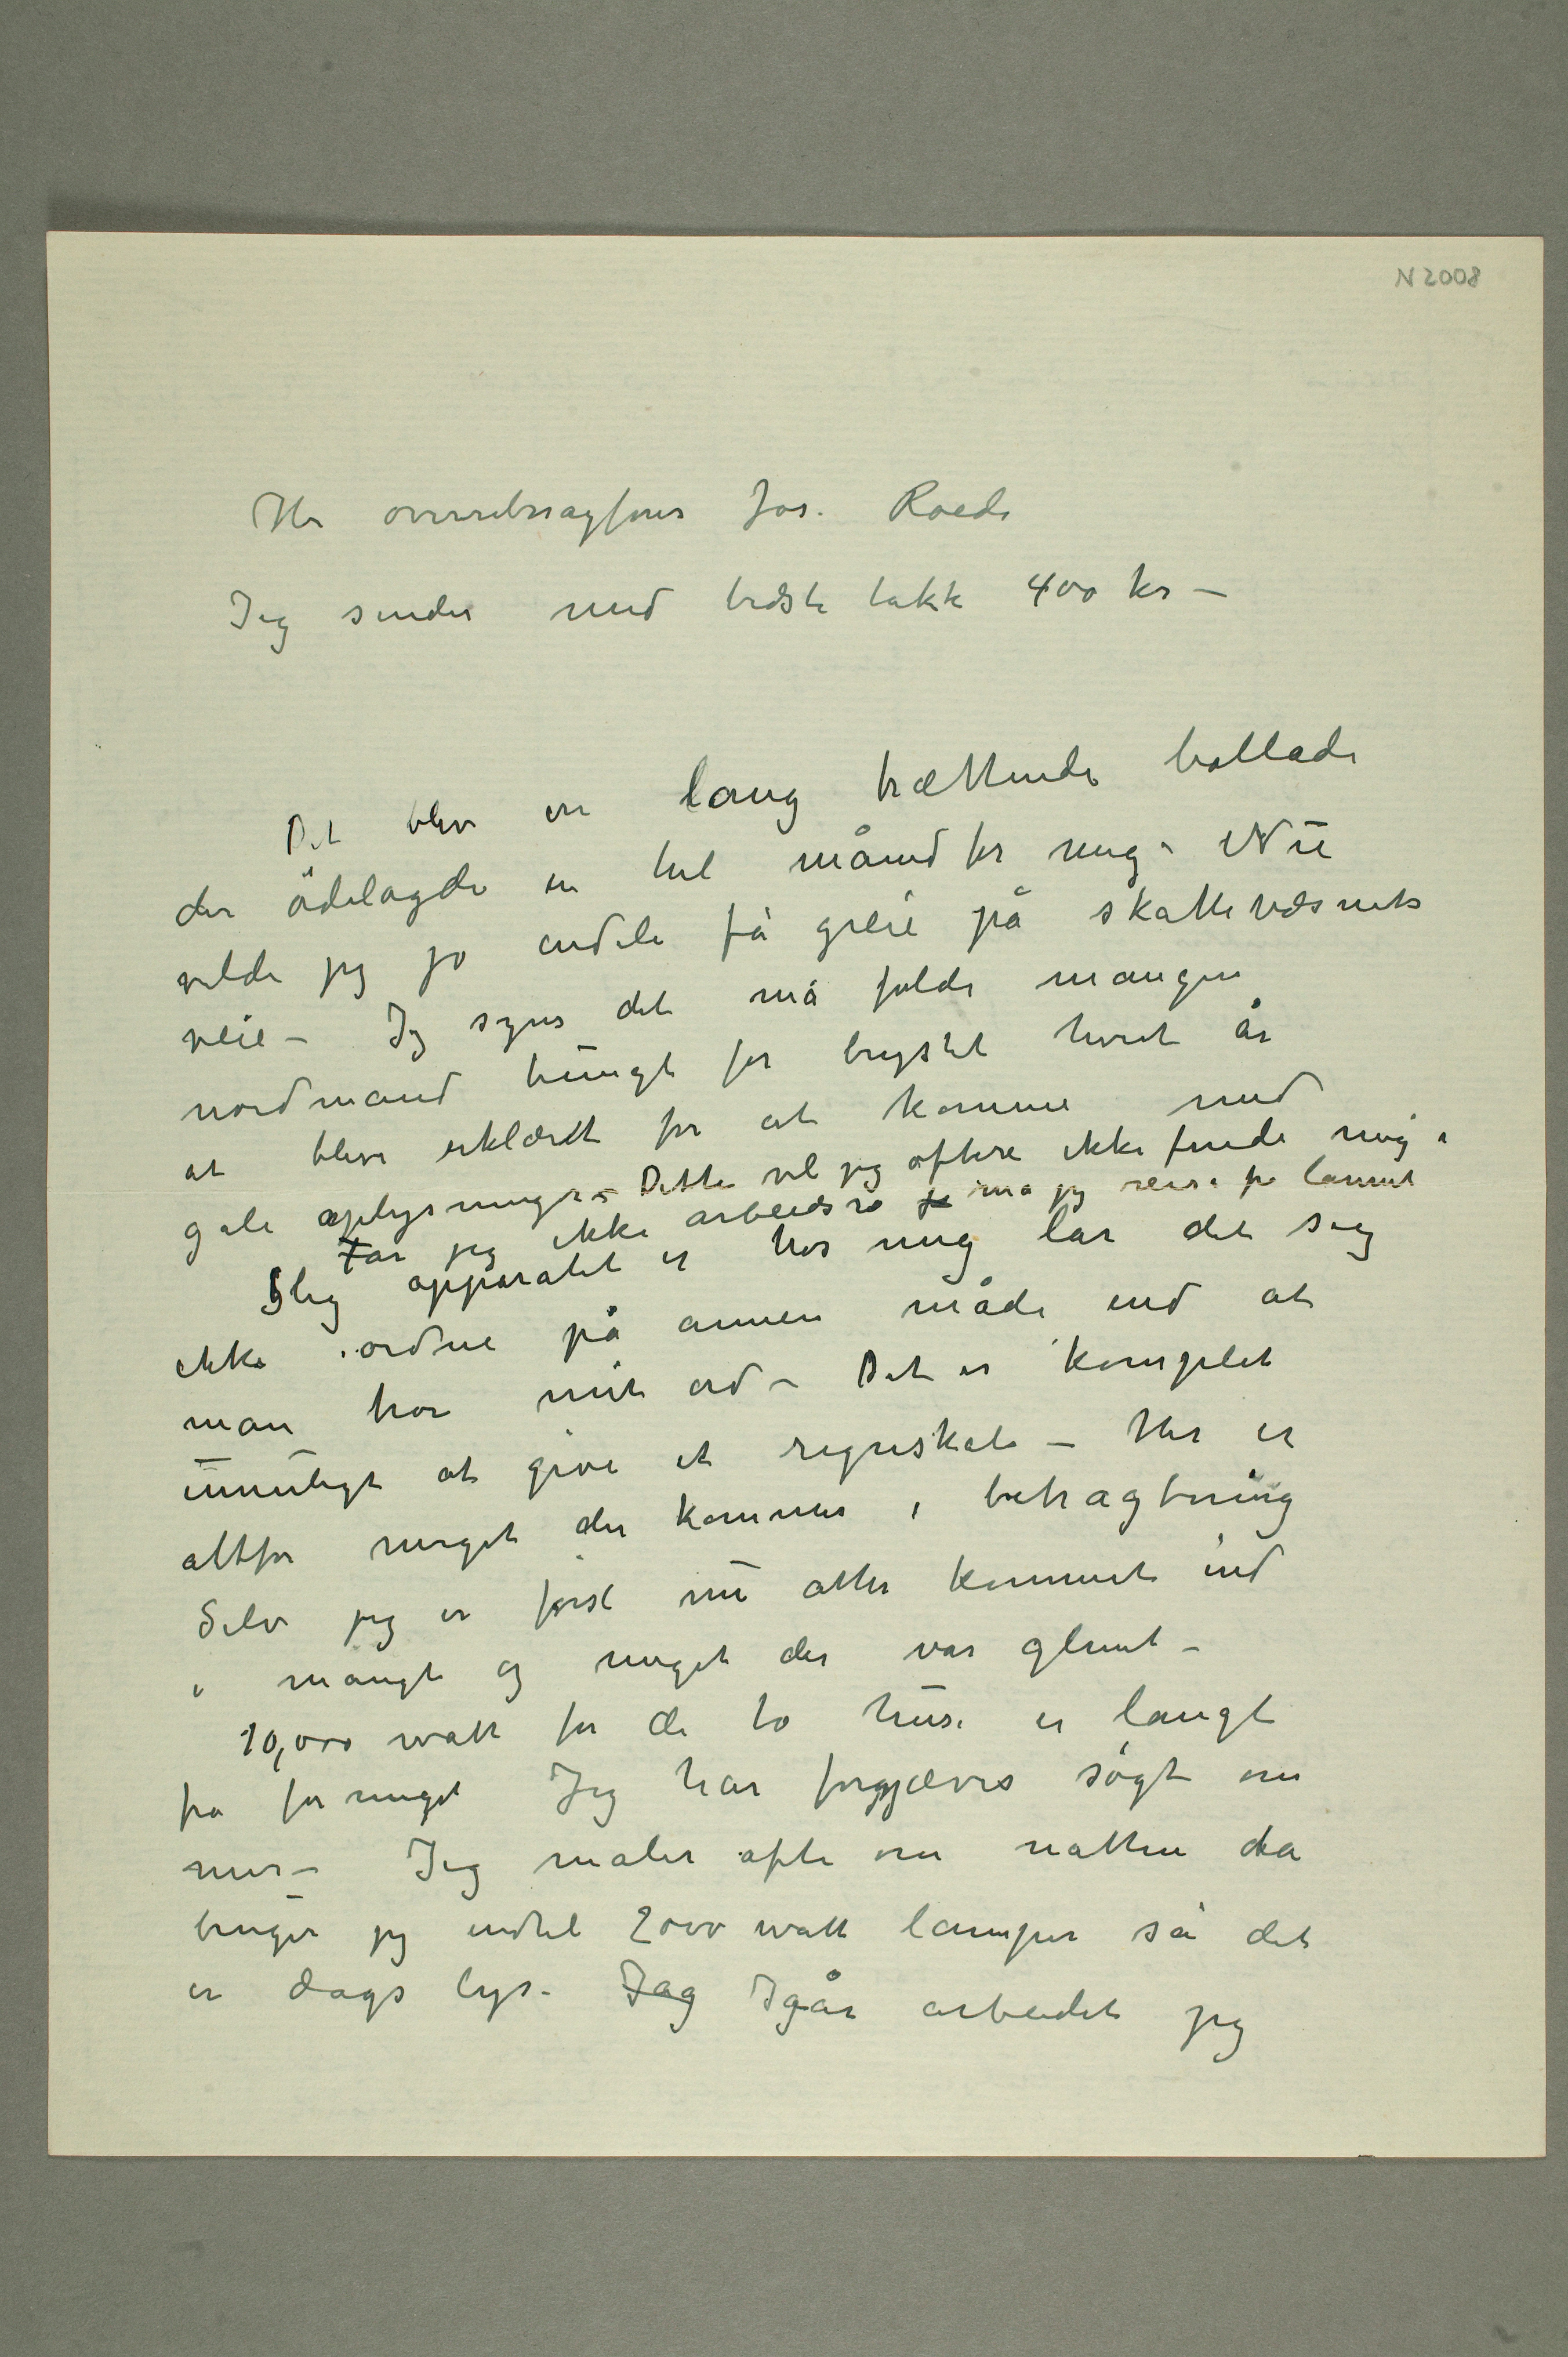 N 2008
Hr overretssagfører Jos. Roede
Jeg sender med bedste takk 400 kr –
Det blev en lang trættende ballade
der ödelagde en hel måned for mig – Nu
vilde jeg jo endeli få greie på skattevæsnets
veie – Jeg synes det må falde mangen
nordmand tungt for brystet hvert år
at blive erklæret for at komme med
gale oplysninger – Dette vil jeg oftere ikke finde mig i
Får jeg ikke arbeidsro må jeg reise fra lannet
Slig apparatet er hos mig lar det sig
ikke ordne på annen måde end at
man tror mit ord – Det er komplet
umuligt at give et regnskab – Her er
altfor meget der kommer i betragtning
Selv jeg er først nu atter kommet ind
i mangt og meget der var glemt –
10,000 watt for de to huse er langt
fra for meget Jeg har forgjæves søgt om
mer – Jeg maler ofte om natten da
bruger jeg indtil 2000 watt lamper så det
er dags lys – Jag Igår arbeidet jeg